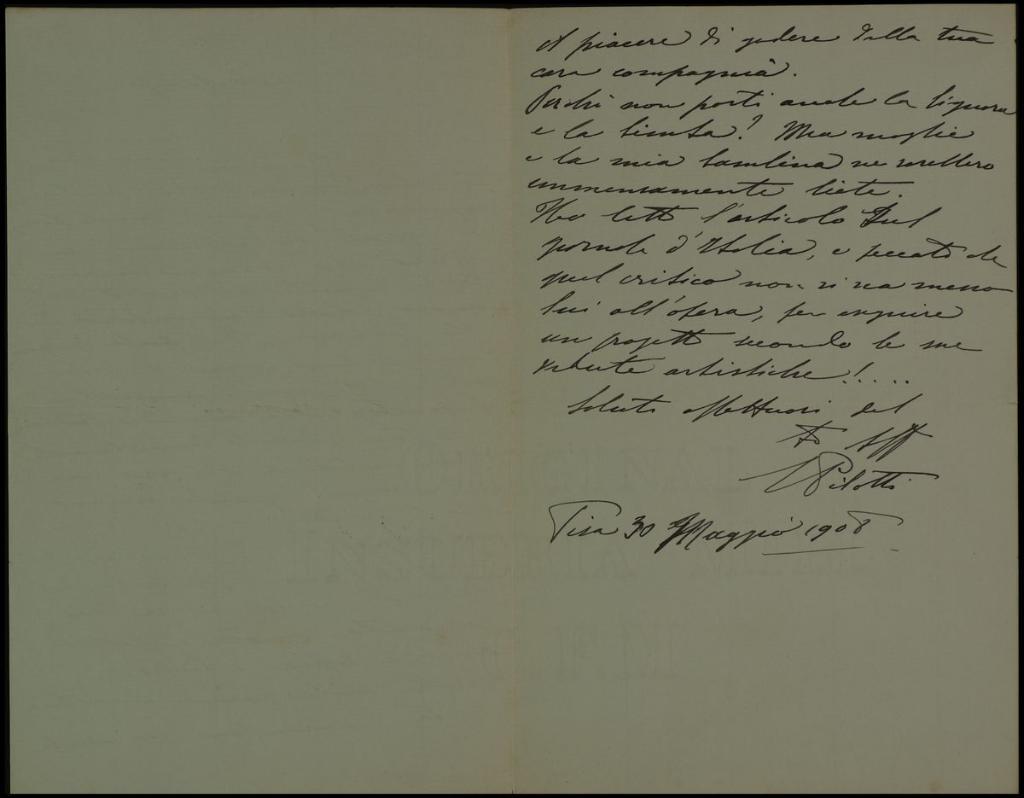 il piacere di godere della tua
cara compagnia.
Perchè non porti anche la Signora
e la bimba? Mia moglie
e la mia bambina ne sarebbero
immensamente liete.
Ho letto l'articolo sul
giornale d'Italia, e peccato che
quel critico non si sia messo
lui all'opera, per eseguire
un progetto secondo le sue
vedute artistiche!....
Saluti affettuosi dal
Tuo Aff
Pilotti
Pisa 30 Maggio 1908